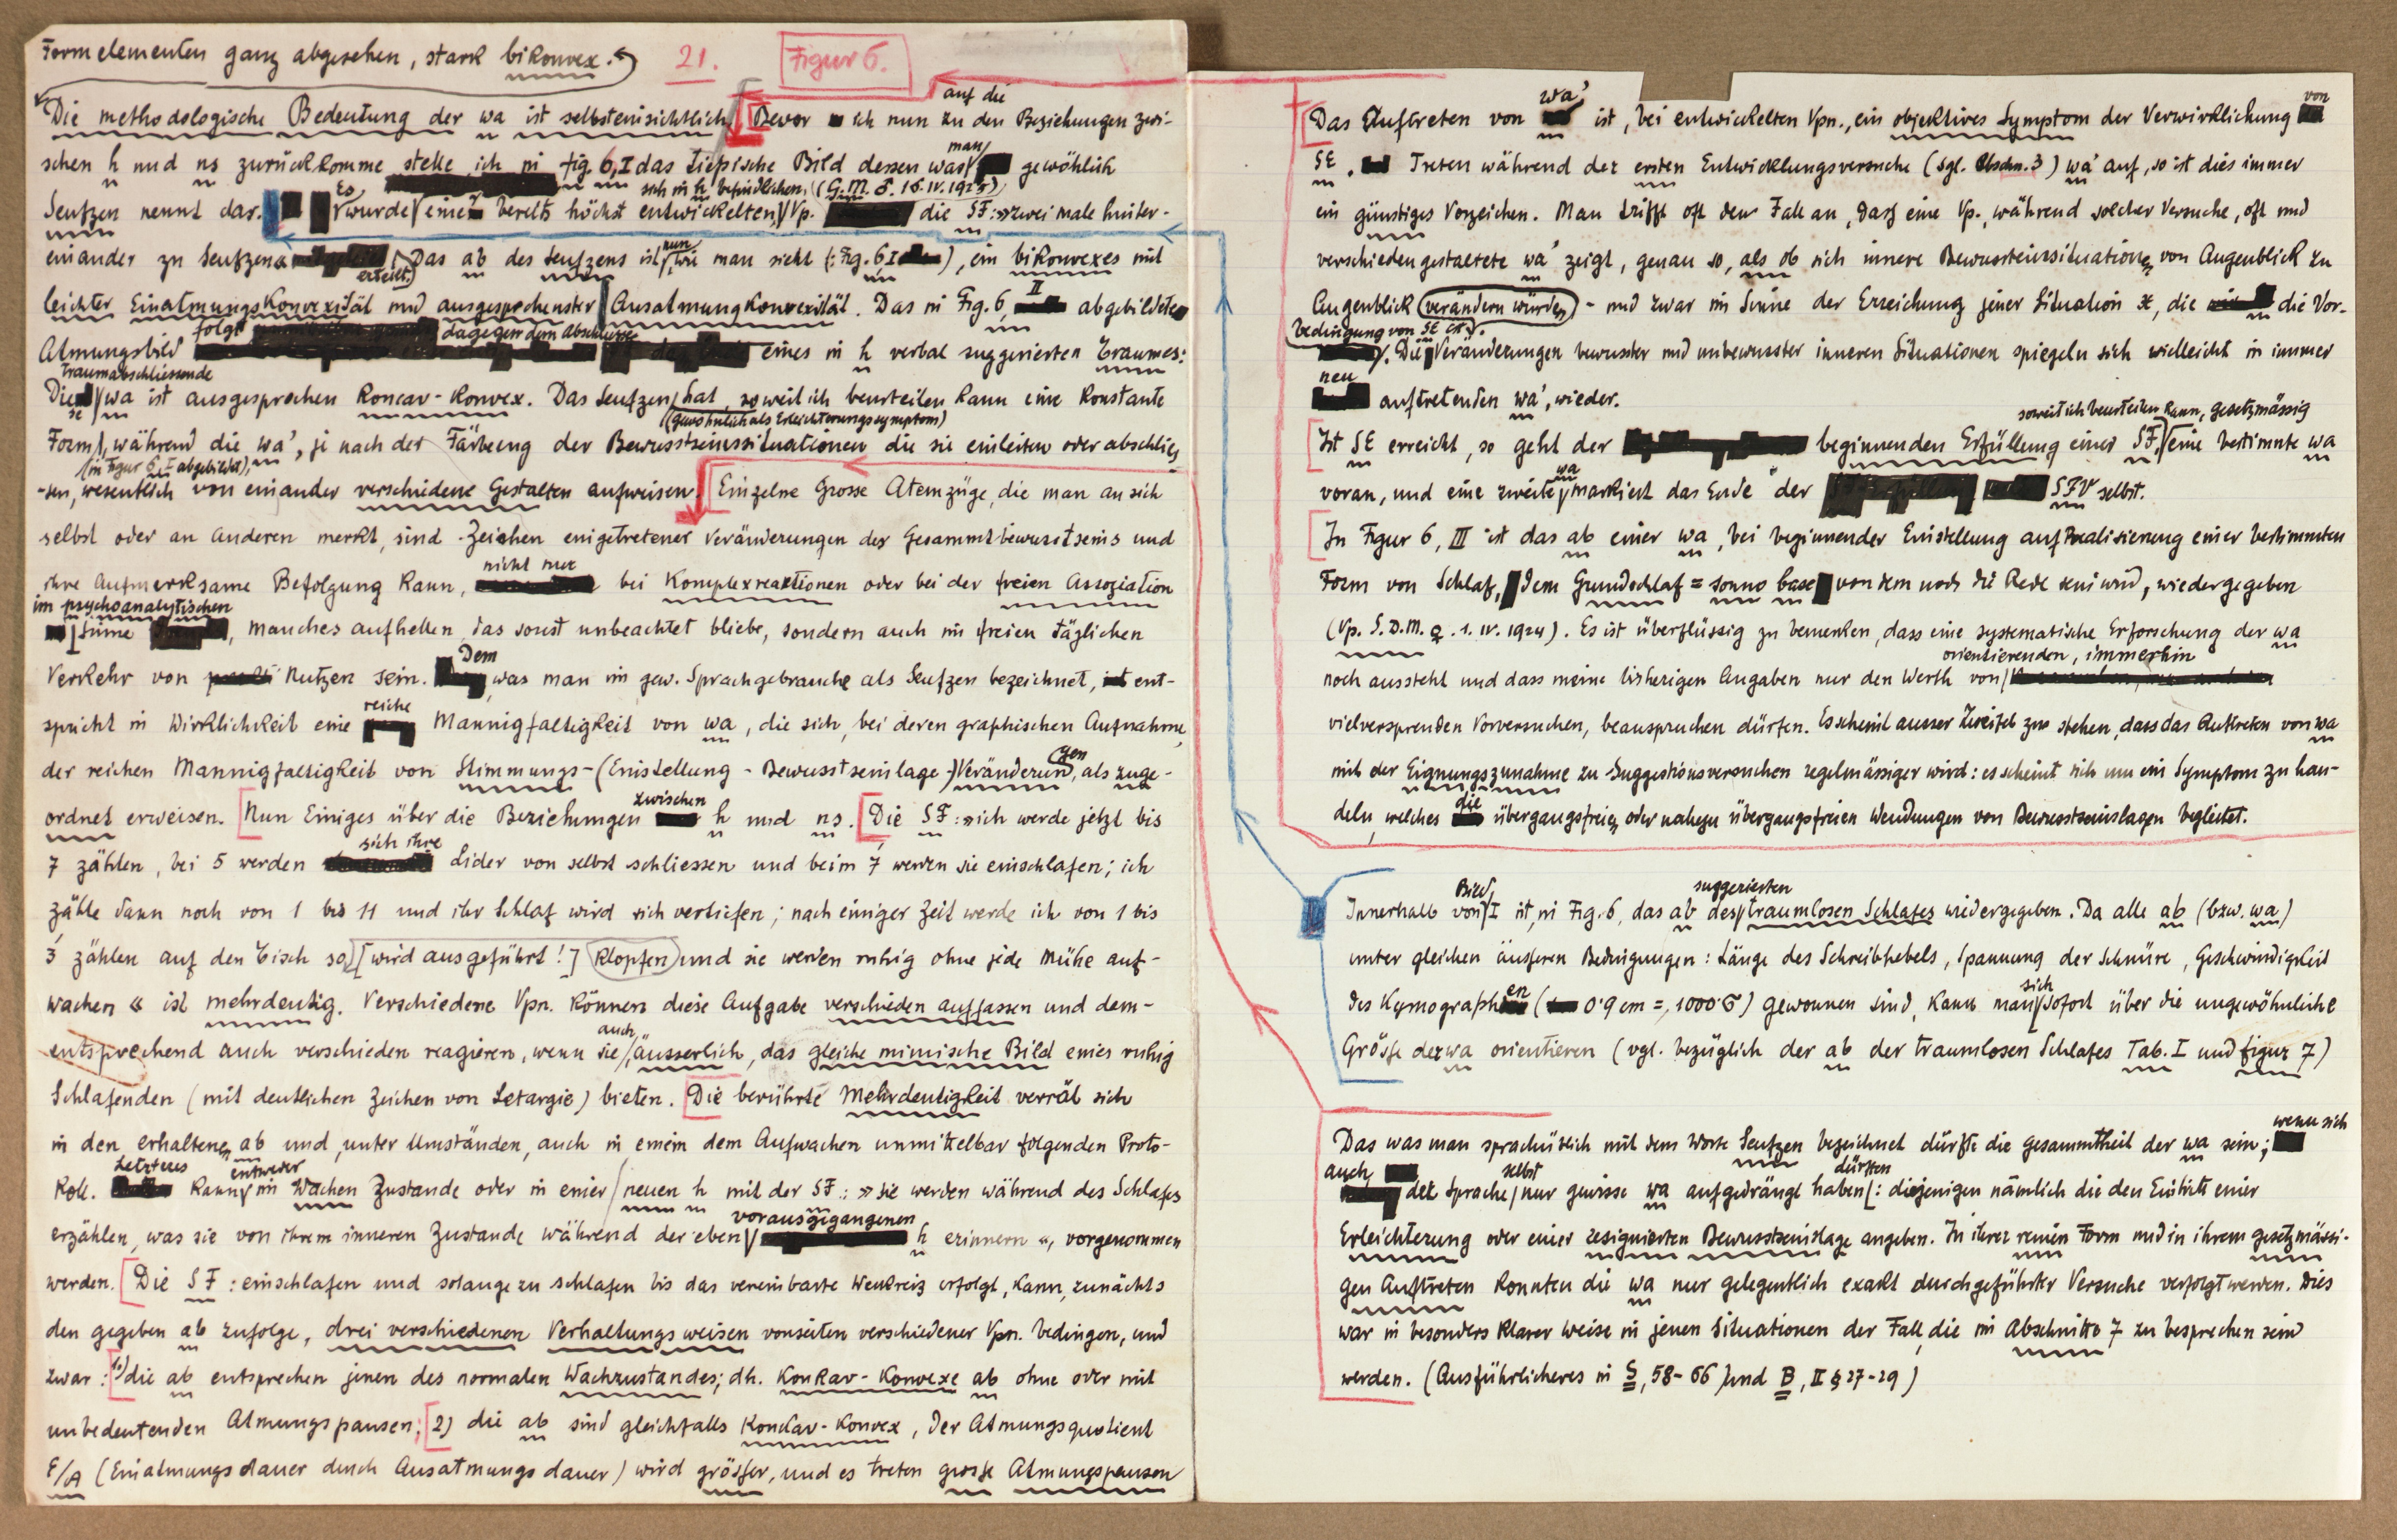 Formelementen ganz abgesehen, stark bikonvex.
21. Figur 6.
Die methodologische Bedeutung der wa ist selbsteinsichtlich. Bevor ich nun zu den auf die Beziehungen zwi-
schen h und ns zurückkomme stelle ich in fig. 6, I das tiepische Bild dessen was man gewöhlich
Seufzen nennt dar. Es wurde einer bereits höchst entwickelten, sich in h befindlichen, Vp. (G.M. ♂. 16.IV.1925) die SF: »zwei male hinter-
einander zu seufzen« erteilt. Das ab des Seufzens ist nun, wie man sieht (: Fig. 6 I), ein bikonvexes mit
leichter Einatmungskonvexität und ausgesprochenster Ausatmungkonvexität. Das in Fig. 6, II abgebildete
Atmungsbild folgt dagegen dem Abschlusse eines in h verbal suggerierten Traumes:
Diese traumabschliessende wa ist ausgesprochen Koncav-Konvex. Das Seufzen hat, soweit ich beurteilen kann eine konstante
Form (gewöhnlich als Erleichterungssymptom), während die wa', je nach der Färbung der Bewusstseinssituationen die sie einleiten oder abschlies-
-sen, (in Figur 6, I abgebildet), wesentlich von einander verschiedene Gestalten aufweisen. Einzelne Grosse Atemzüge, die man an sich
selbst oder an anderen merkt, sind Zeichen eingetretener Veränderungen des Gesammtbewusstseins und
ihre aufmerksame Befolgung kann, nicht nur bei Komplexreaktionen oder bei der freien Assoziation
im psychoanalytischen Sinne, manches aufhellen, das sonst unbeachtet bliebe, sondern auch im freien täglichen
Verkehr von Nutzen sein. Dem, was man im gew. Sprachgebrauche als Seufzen bezeichnet, ent-
spricht in Wirklichkeit eine reiche Mannigfaltigkeit von wa, die sich, bei deren graphischen Aufnahme,
der reichen Mannigfaltigkeit von Stimmungs-(Einstellung-Bewusstseinlage-)Veränderungen, als zuge-
ordnet erweisen. Nun Einiges über die Beziehungen zwischen h und ns. Die SF: »ich werde jetzt bis
7 zählen, bei 5 werden sich ihre Lider von selbst schliessen und beim 7 werden sie einschlafen; ich
zähle dann noch von 1 bis 11 und ihr Schlaf wird sich vertiefen; nach einiger Zeit werde ich von 1 bis
3 zählen auf den Tisch so [wird ausgeführt!] klopfen und sie werden ruhig ohne jede Mühe auf-
wachen « ist mehrdeutig. Verschiedene Vpn. können diese Aufgabe verschieden auffassen und dem-
entsprechend auch verschieden reagieren, wenn sie auch, äusserlich, das gleiche mimische Bild eines ruhig
Schlafenden (mit deutlichen Zeichen von Letargie) bieten. Die berührte Mehrdeutigkeit verrät sich
in den erhaltenen ab und, unter Umständen, auch in einem dem Aufwachen unmittelbar folgenden Proto-
koll. Letzteres kann entweder im Wachen Zustande oder in einer neuen h mit der SF: »sie werden während des Schlafes
erzählen, was sie von ihrem inneren Zustande während der eben vorausgegangenen h erinnern«, vorgenommen
werden. Die SF: einschlafen und solange zu schlafen bis das vereinbarte Weckreiz erfolgt, kann, zunächts
den gegeben ab zufolge, drei verschiedenen Verhaltungsweisen vonseiten verschiedener Vpn. bedingen, und
zwar: 1.) die ab entsprechen jenen des normalen Wachzustandes; dh. Konkav-Konvexe ab ohne oder mit
unbedeutenden Atmungspausen; 2) die ab sind gleichfalls Konkav-Konvex, der Atmungsquotient
E/A (Einatmungsdauer durch Ausatmungsdauer) wird grösser, und es treten grosse Atmungspausen
Das Auftreten von wa' ist, bei entwickelten Vpn., ein objektives Symptom der Verwirklichung von
SE. Treten während der ersten Entwicklungsversuche (vgl. Abschn. 3) wa' auf, so ist dies immer
ein günstiges Vorzeichen. Man trifft oft den Fall an, dass eine Vp., während solcher Versuche, oft und
verschieden gestaltete wa' zeigt, genau so, als ob sich innere Bewussteinssituationen von Augenblick zu
Augenblick verändern würden - und zwar im Sinne der Erreichung jener Situation, die die Vor-
bedingung von SE ist. Die Veränderungen bewusster und unbewusster inneren Situationen spiegeln sich vielleicht in immer
neu auftretenden wa', wieder.
Ist SE erreicht, so geht der beginnenden Erfüllung einer SF, soweit ich beurteilen kann, gesetzmässig eine bestimmte wa
voran, und eine zweite wa markiert das Ende der SFV selbst.
In Figur 6, III ist das ab einer wa, bei beginnender Einstellung auf Realisierung einer bestimmten
Form von Schlaf, dem Grundschlaf = sonno base von dem noch die Rede sein wird, wiedergegeben
(Vp. S.D.M. ♀. 1.IV.1924). Es ist überflüssig zu bemerken, dass eine systematische Erforschung der wa
noch aussteht und dass meine bisherigen Angaben nur den Werth von orientierenden, immerhin
vielversprenden Vorversuchen, beanspruchen dürfen. Es scheint ausser Zweifel zu stehen, dass das Auftreten von wa
mit der Eignungszunahme zu Suggestionsversuchen regelmässiger wird: es scheint sich um ein Symptom zu han-
deln, welches die übergangsfreien oder nahezu übergangsfreien Wendungen von Bewusstseinslagen begleitet.
Innerhalb von Bild I ist, in Fig. 6, das ab des suggerierten traumlosen Schlafes wiedergegeben. Da alle ab (bzw. wa)
unter gleichen äusseren Bedingungen: Länge des Schreibhebels, Spannung der Schnüre, Geschwindigkeit
des Kymographen (0·9 cm = 1000·σ) gewonnen sind, kann man sich sofort über die ungewöhnliche
Grösse der wa orientieren (vgl. bezüglich der ab der traumlosen Schlafes Tab. I und figur 7)
Das was man sprachüblich mit dem Worte Seufzen bezeichnet dürfte die gesammtheit der wa sein; wenn sich
auch der Sprache selbst nur gewisse wa aufgedrängt haben dürften: diejenigen nämlich die den Eintritt einer
Erleichterung oder einer resignierten Bewusstseinslage angeben. In ihrer reinen Form und in ihrem gesetzmässi-
gen Auftreten konnten die wa nur gelegentlich exackt durchgeführter Versuche verfolgt werden. Dies
war in besonders klarer Weise in jenen Situationen der Fall, die im Abschnitte 7 zu besprechen sein
werden. (Ausführlicheres in S, 58-66 und B, II § 27-29)